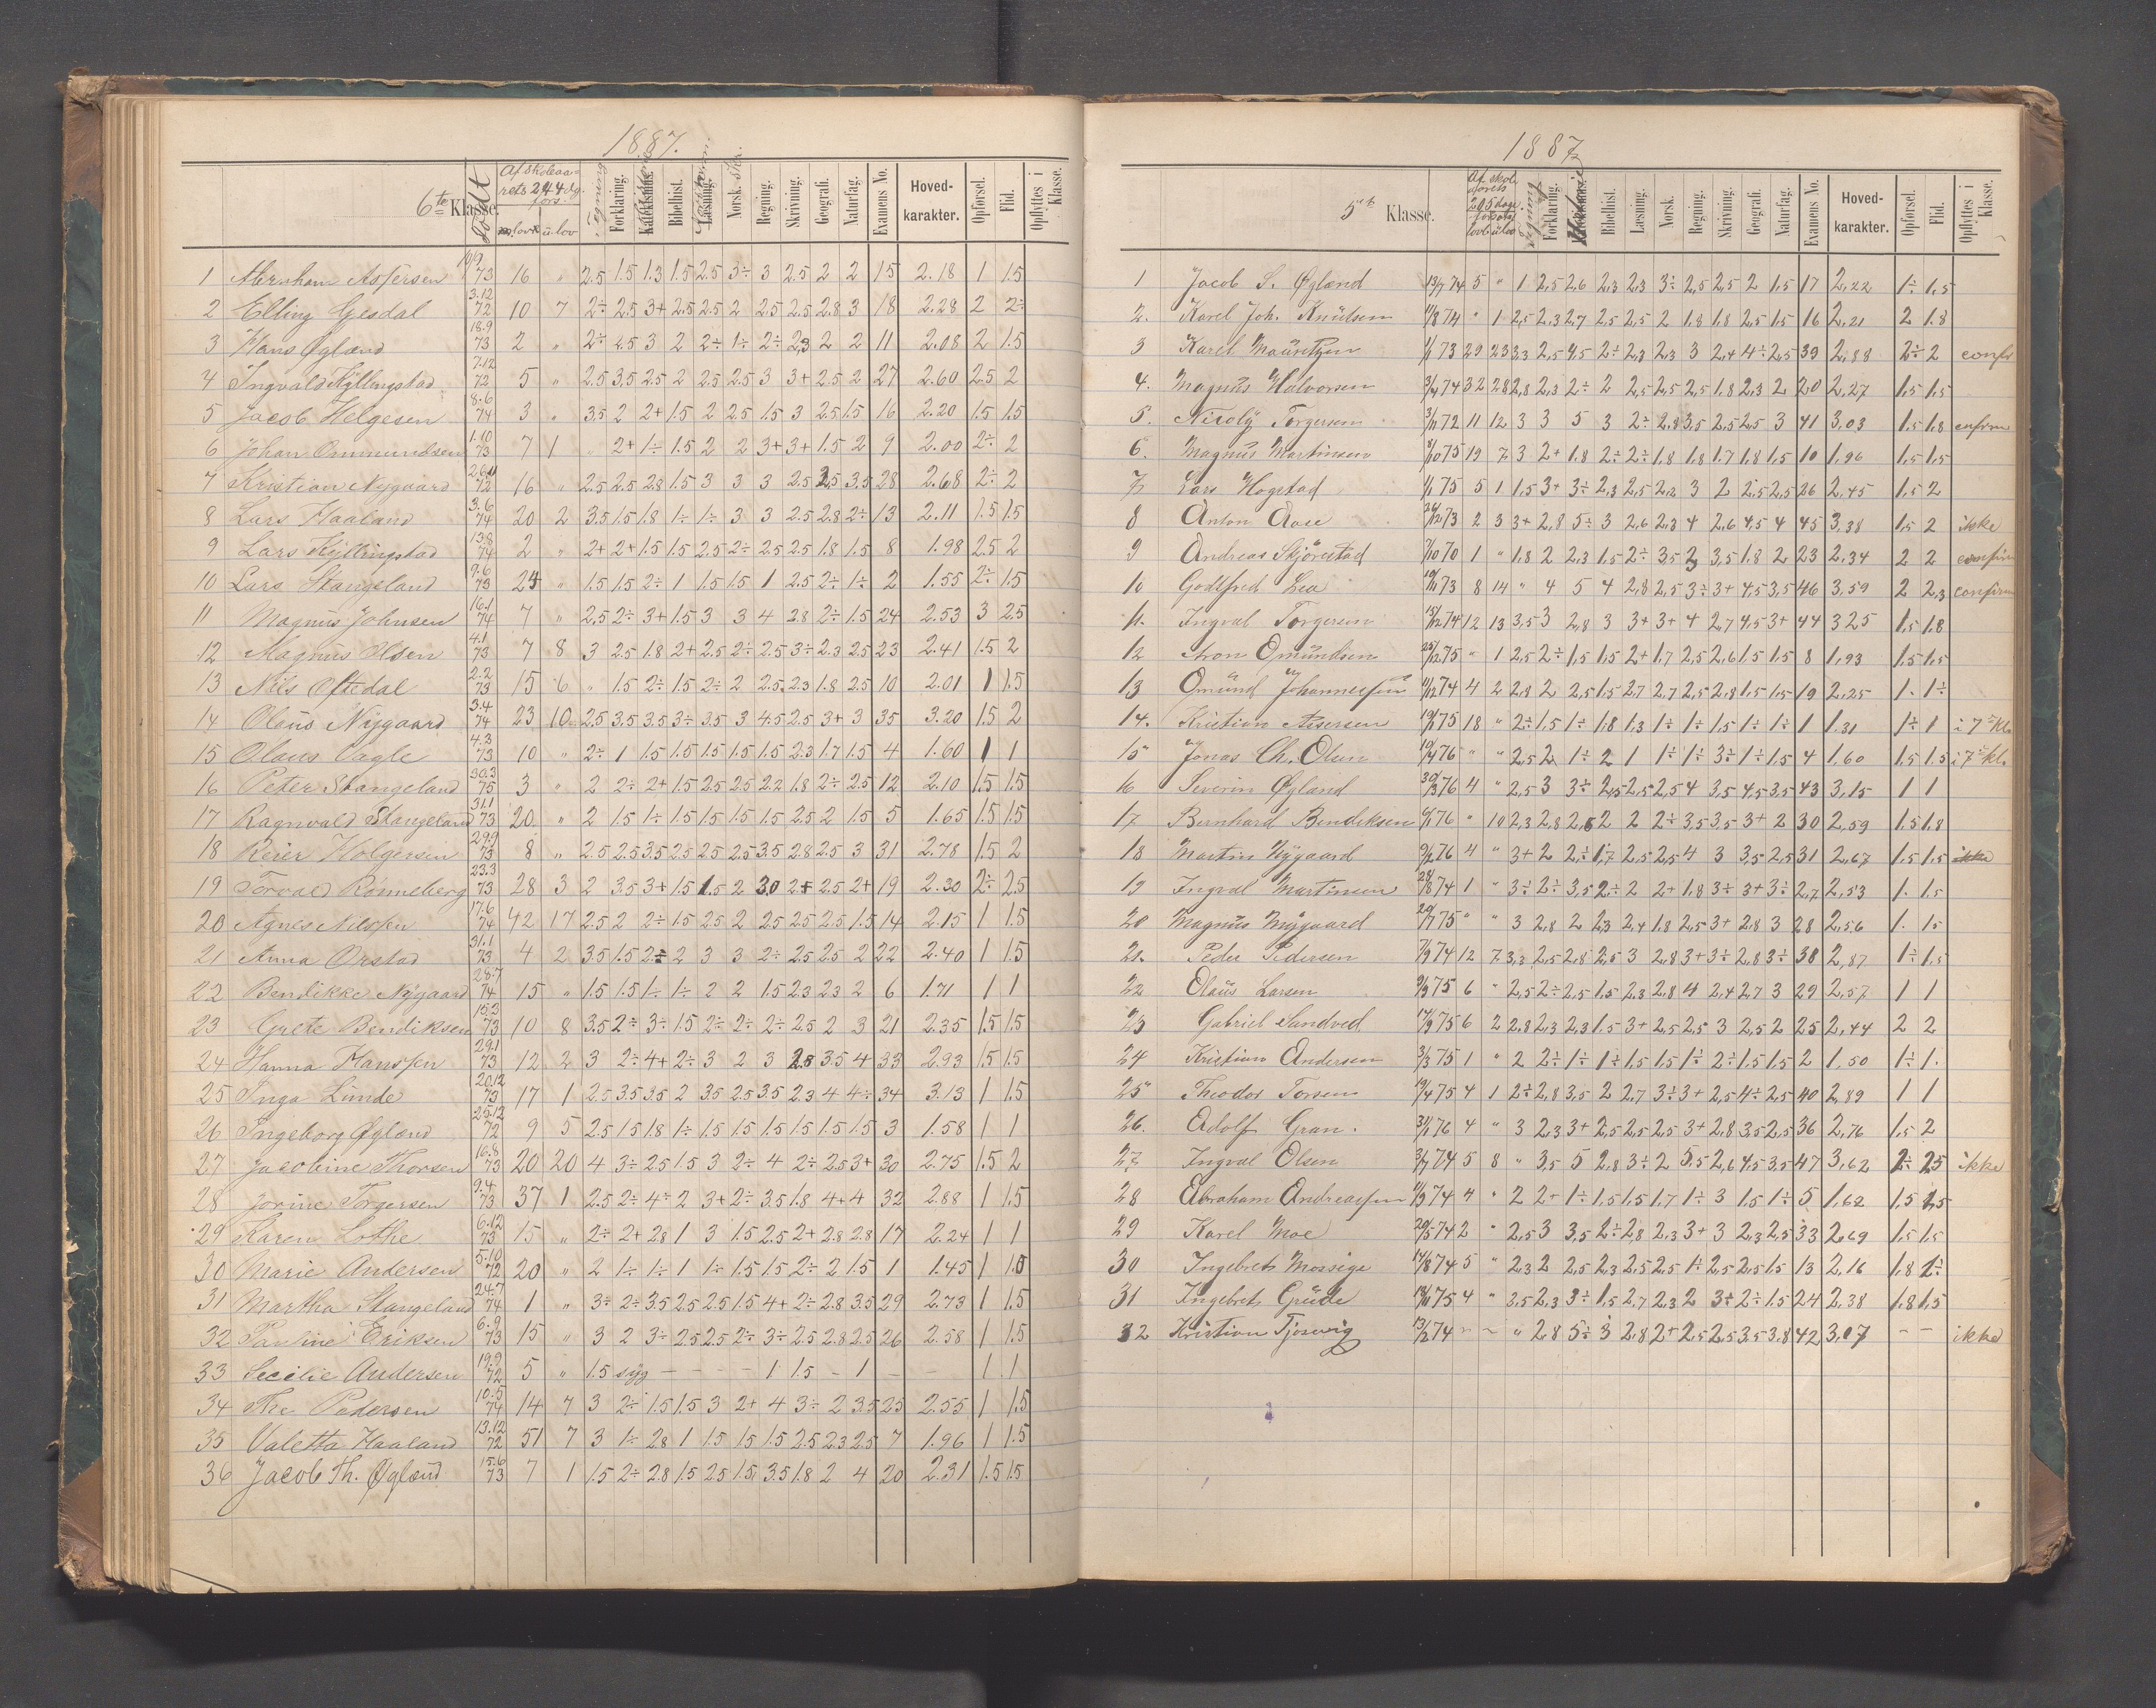 1887.
6te Klasse.
Født
Af skoleaa-
rets 244 dg.
fors.
lov. u. lov
Tegning
Forklaring.
Bibelhist.
Læsning.
Norsk. Skr.
Regning.
Skrivning.
Geografi.
Naturfag.
Examens No.
Hoved-
karakter.
Opførsel.
Flid.
Opflyttes i
Klasse.
1 Abraham Asfersen 10.9 73 16 " 2.5 1.5 1.3 1.5 2.5 3÷ 3 2.5 2 2 15 2.18 1 1.5
2 Elling Gesdal 3.12 72 10 7 2÷ 2.5 3+ 2.5 2.5 2 2.5 2.5 2.8 3 18 2.28 2 2÷
3 Hans Øgland 18.9 73 2 " 2÷ 2.5 3 2 2÷ 1÷ 2÷ 2.3 2 2 11 2.08 2 1.5
4 Ingvald Kyllingstad 7.12 72 5 " 2.5 3.5 2.5 2 2.5 2.5 3 3+ 2.5 2 27 2.60 2.5 2
5 Jacob Helgesen 8.6 74 3 " 3.5 2 2+ 1.5 2 2.5 1.5 3 2.5 1.5 16 2.20 1.5 1.5
6 Johan Ommundsen 1.10 73 7 1 " 2+ 1÷ 1.5 2 2 3+ 3+ 1.5 2 9 2.00 2÷ 2
7 Kristian Nygaard 26.11 72 16 " 2.5 2.5 2.8 1.5 3 3 3 2.5 2.5 3.5 28 2.68 2÷ 2
8 Lars Haaland 3.6 74 20 2 3.5 1.5 1.8 1÷ 1÷ 3 3 2.5 2.8 2÷ 13 2.11 1.5 1.5
9 Lars Kyllingstad 13.8 74 2 " 2+ 2+ 1.5 1.5 2.5 2÷ 2.5 2.5 1.8 1.5 8 1.98 2.5 2
10 Lars Stangeland 9.6 73 24 " 1.5 1.5 2÷ 1 1.5 1.5 1 2.5 2÷ 1÷ 2 1.55 2÷ 1.5
11 Magnus Johnsen 16.1 74 7 " 2.5 2÷ 3+ 1.5 3 3 4 2.8 2÷ 1.5 24 2.53 3 2.5
12 Magnus Olsen 4.1 73 7 8 3 2.5 1.8 2+ 2.5 2÷ 2.5 3÷ 2.3 2.5 23 2.41 1.5 2
13 Nils Oftedal 2.2 73 15 6 " 1.5 2÷ 1.5 2÷ 2 2.5 2.3 1.8 2.5 10 2.01 1 1.5
14 Olaus Nygaard 3.4 74 23 10 2.5 3.5 3.5 3÷ 3.5 3 4.5 2.5 3+ 3 35 3.20 1.5 2
15 Olaus Vagle 4.3 73 10 " 2÷ 1 1.5 1.5 1.5 1.5 1.5 2.3 1.7 1.5 4 1.60 1 1
16 Peter Stangeland 30.3 75 3 " 2 2÷ 2+ 1.5 2.5 2.5 2.2 1.8 2÷ 2.5 12 2.10 1.5 1.5
17 Ragnvald Stangeland 31.1 73 20 " 2 1.5 1÷ 1.5 1.5 1.5 1.5 2.5 2 1.5 5 1.65 1.5 1.5
18 Reier Holgersen 29.9 73 8 " 2.5 2.5 3.5 2.5 2.5 2.5 3.5 2.8 2.5 3 31 2.78 1.5 2
19 Torvald Rønneberg 23.3 73 28 3 2 3.5 3+ 1.5 1.5 2 3.0 2+ 2.5 2+ 19 2.30 2÷ 2.5
20 Agnes Nilssen 17.6 74 42 17 2.5 2 2÷ 1.5 2.5 2 2.5 2.5 2.5 1.5 14 2.15 1 1.5
21 Anna Orstad 31.1 73 4 2 3.5 1.5 2÷ 2 3 3 2÷ 2.5 2.5 2 22 2.40 1 1.5
22 Bendikke Nygaard 28.7 74 15 " 1.5 1.5 1÷ 1÷ 2 2 1.5 2.3 2.3 2 6 1.71 1 1
23 Grete Bendiksen 15.3 73 10 8 3.5 2÷ 3÷ 1.5 2÷ 2÷ 2÷ 2.5 2 3 21 2.35 1.5 1.5
24 Hanna Hanssen 29.1 73 12 2 3 2÷ 4+ 2÷ 3 2 3 2.8 3.5 4 33 2.93 1.5 1.5
25 Inga Lunde 20.12 73 17 1 2.5 3.5 3.5 2 3.5 2.5 3.5 2.3 4 4÷ 34 3.13 1 1.5
26 Ingeborg Øgland 25.12 72 9 5 2.5 1.5 1.8 1÷ 1.5 1.5 1.5 1.5 1.5 1.5 3 1.58 1 1
27 Jacobine Thorsen 16.8 73 20 20 4 3÷ 2.5 1.5 3 2÷ 4 2÷ 2.5 3+ 30 2.75 1.5 2
28 Jorine Torgersen 9.4 73 37 1 2.5 2÷ 4÷ 2 3+ 2÷ 3.5 1.8 4+ 4 32 2.88 1 1.5
29 Karen Lothe 6.12 73 15 " 2÷ 2+ 2.8 1 3 1.5 2.5 2+ 2.8 2.8 17 2.24 1 1
30 Marie Andersen 5.10 72 20 " 2 1÷ 1÷ 1 1÷ 1.5 1.5 2÷ 2 1.5 1 1.45 1 1.0
31 Martha Stangeland 24.7 74 1 " 3÷ 2÷ 3.5 2.5 2.5 1.5 4+ 2÷ 2.8 3.5 29 2.73 1 1.5
32 Pauline Eriksen 6.9 73 15 " 3 2 3÷ 2.5 2.5 2÷ 3÷ 2.5 2.8 2.5 26 2.58 1 1.5
33 Secilie Andersen 19.9 72 5 " 1.5 syg – – – – 1 1.5 – 1 – – 1 1
34 The Pedersen 10.5 74 14 7 3 2÷ 1.5 1.5 3 2+ 4 3÷ 2 3.5 25 2.55 1 1.5
35 Valetta Haaland 13.12 72 51 7 3 1÷ 2.8 1 1.5 1.5 1.5 2.5 2.3 2.5 7 1.96 1 1.5
36 Jacob Th. Øgland 15.6 73 7 1 1.5 2÷ 2.8 1.5 2.5 1.5 3.5 1.8 2 4 20 2.31 1.5 1.5
1887
5te Klasse.
Af skole
aarets
205 dage
forsømt
lovl. u. lov
Tegning
Forklaring.
Bibelhist.
Læsning.
Norsk.
Regning.
Skrivning.
Geografi.
Naturfag.
Examens No.
Hoved-
karakter.
Opførsel.
Flid.
Opflyttes i
Klasse.
1 Jacob S. Øgland 13/7 74 5 " 1 2,5 2,6 2,3 2,3 3÷ 2,5 2,5 2 1,5 17 2,22 1÷ 1,5
2. Karel Joh. Knutsen 11/8 74 " 1 2,5 2,3 2,7 2,5 2,5 2 1.8 1.8 2,5 1,5 16 2,21 2 1.8
3 Karel Mauritzen 1/1 73 29 23 3,3 2,5 4,5 2÷ 2,3 2,3 3 2,4 4÷ 2,5 39 2,88 2÷ 2 confr
4. Magnus Halvorsen 3/4 74 32 28 2,8 2,3 2÷ 2 2,5 2,5 2,5 1,8 2,3 2 20 2,27 1,5 1,5
5. Nicoly Torgersen 3/11 72 11 12 3 3 5 3 2÷ 2,8 3,5 2,5 2,5 3 41 3,03 1,5 1,8 cnfrm
6. Magnus Martinsen 8/10 75 19 7 3 2+ 1.8 2÷ 2÷ 1.8 1.8 1.7 1.8 1,5 10 1,96 1,5 1,5
7 Lars Hogstad 1/1 75 5 1 1,5 3+ 3÷ 2,3 2,5 2,2 3 2 2,5 2,5 26 2,45 1,5 2
8 Anton Aase 24/12 73 2 3 3+ 2,8 5÷ 3 2,6 2,3 4 2,6 4,5 4 45 3,38 1,5 2 ikke
9 Andreas Skjørestad 7/10 70 1 " 1.8 2 2,3 1,5 2÷ 3,5 2 3,5 1.8 2 23 2,34 2 2 confirm
10 Godtfred Lea 19/11 73 8 14 " 4 5 4 2,8 2,5 3÷ 3+ 4,5 3,5 46 3,59 2 2,3 confirm
11. Ingval Torgersen 13/12 74 12 13 3,5 3 2,8 3 3+ 3+ 4 2,7 4,5 3+ 44 325 1,5 1.8
12 Aron Omundsen 25/12 75 " 1 2,5 2÷ 1,5 1,5 2+ 1,7 2,5 2,6 1,5 1,5 8 1,93 1,5 1,5
13 Omund Johannessen 11/12 74 4 2 2,8 2 2,5 1,5 2,7 2,7 2,5 2,8 1,5 1,5 19 2,25 1. 1÷
14. Kristian Asersen 19/1 75 18 " 2÷ 1,5 1÷ 1.8 1,3 1÷ 1÷ 1,5 1÷ 1÷ 1 1.31 1÷ 1 i 7de kl.
15 Jonas Ch. Olsen 10/4 76 " " 2,5 2 1÷ 2 1 1÷ 1÷ 3÷ 1÷ 1,5 4 1,60 1,5 1,5 i 7de kl.
16 Severin Øgland 30/3 76 4 " 2,5 3 3÷ 2,5 2,5 2,5 4 3,5 4,5 3,5 43 3,15 1 1
17. Bernhard Bendiksen 6/1 76 " 10 2,3 2,8 2,6 2 2 2÷ 3,5 3,5 3+ 2 30 2,59 1,5 1,8
18 Martin Nygaard 9/2 76 4 " 3+ 2 2÷ 1,7 2,5 2,5 4 3 3,5 2,5 31 2,67 1,5 1,5 ikke
19 Ingval Martinsen 28/8 74 1 " 3÷ 2÷ 3,5 2÷ 2 2+ 1.8 3÷ 3+ 3÷ 2,7 2,53 1. 1,5
20 Magnus Nygaard 20/7 75 " " 3 2,8 2 2,3 2,4 1.8 2,5 3+ 2,8 3 28 2,56 1. 1.5
21. Peder Pedersen 7/9 74 12 7 3,3 2,5 2,8 2,5 3 2,8 3+ 3÷ 2,8 3÷ 38 2,87 1÷ 1,5
22 Olaus Larsen 9/3 75 6 " 2,5 2÷ 2,5 1,5 2,3 2,8 4 2,4 2,7 3 29 2,57 1 1
23 Gabriel Sandved 17/9 75 6 2 2.8 2,3 2,3 1.5 3+ 2,5 2,5 3 2,5 2 25 2,44 2 2
24 Kristian Andersen 3/3 75 1 " 2 2÷ 1÷ 1÷ 1,5 1,5 1÷ 2÷ 1,5 1,5 2 1,50 1÷ 1.
25 Theodor Torsen 19/4 75 4 1 2÷ 2,8 3,5 2 2,7 3÷ 3+ 2,5 4÷ 2,5 40 2,89 1 1
26. Adolf Gran. 31/1 76 4 " 3 2,3 3+ 2,5 2,5 2,5 3+ 2,8 3,5 2,5 36 2,76 1,5 2
27 Ingval Olsen 3/7 74 5 8 " 3,5 5 2,8 3÷ 2 5,5 2,6 4,5 3,5 47 3,62 2÷ 2,5 ikke
28 Abraham Andreassen 11/9 74 4 " 2 2+ 1÷ 1,5 1,5 1,7 1÷ 3 1,5 1÷ 5 1,62 1,5 1,5
29 Karel Moe 20/5 74 2 " 2,5 3 3,5 2÷ 2,8 2,3 3+ 3 2,3 2,5 33 2,69 1,5 1,5
30 Ingebret Mossige 14/8 74 5 " 2,3 2 2,5 2,3 2,5 2,5 1÷ 2,5 2,5 1,5 13 2,16 1,8 1÷
31 Ingebret Grude 18/11 75 4 " 3,5 2,3 3÷ 1,5 2,7 2,3 2 3+ 2÷ 1.5 24 2,38 1.8 1,5
32 Kristian Tjosevig 13/2 74 – – " 2,8 5÷ 3 2,8 2+ 2,5 2,5 3,5 3,8 42 3,07 – – ikke